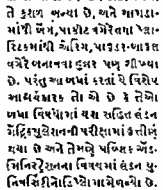 તે કુશળ બન્યા છે, અને કાગડા-
માંથી ખેંગ, પાકીટ વગેરેતથા પ્લા-
સ્ટિકમાંથી એરિંગ, પાઉડર-બાકસ
વગેરે બનાવવા હુન્નર પણ શીખ્યા
છે. પરંતુ આ બધાં કરતાં યે વિશેષ
આશ્ચર્યકારક તો એ છે કે તેઓ
બધા વિષયોમાં યશ સહિત લંડન
મેટ્રિક્યુલેશનની પરીક્ષામાં ઉત્તીર્ણ
થયા છે અને તેમણે પબ્લિક એડ-
મિનિસ્ટ્રેશનના વિષયમાં લંડન યુ-
નિવર્સિટીનોડિપ્લોમામેળવ્યો છે.